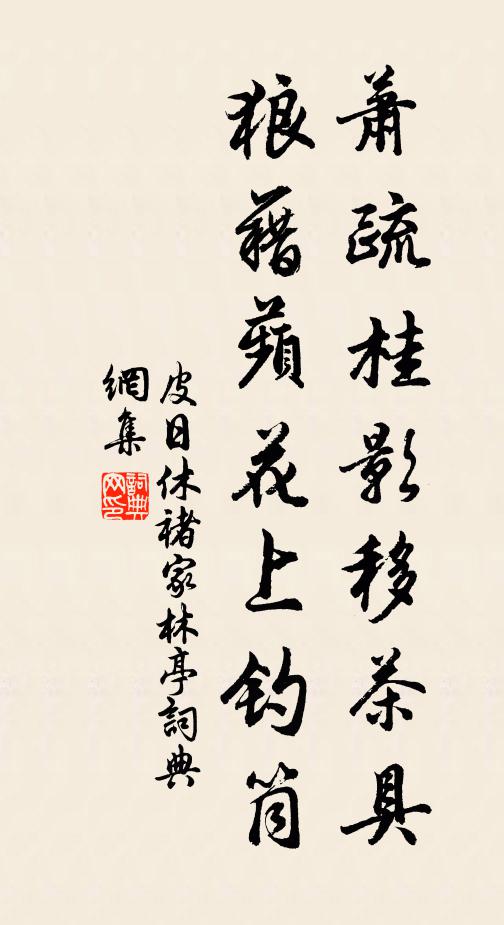 萧疏桂影移茶具
狼藉蘋花上钓筒
皮日休褚家林亭詞典
網集
詞典网印